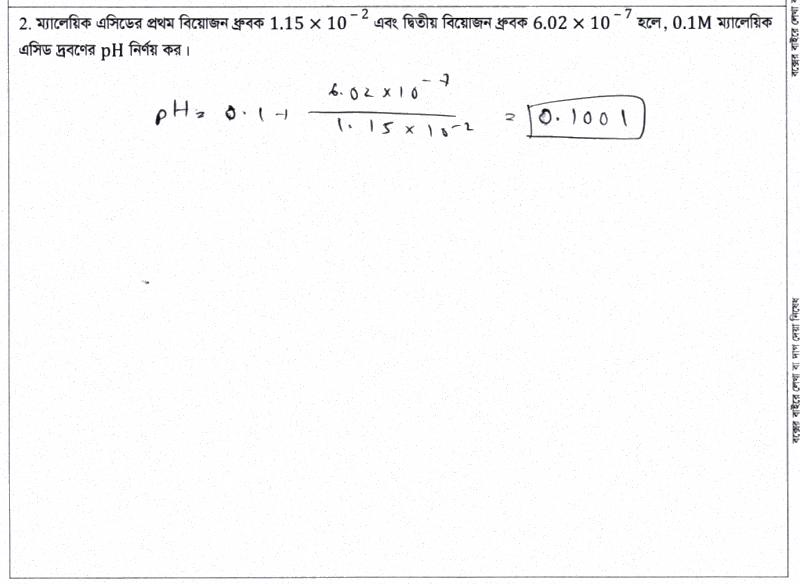 2. ম্যালেয়িক এসিডের প্রথম বিয়োজন ধ্রুবক 1.15 × 10⁻² এবং দ্বিতীয় বিয়োজন ধ্রুবক 6.02 × 10⁻⁷ হলে, 0.1M ম্যালেয়িক
এসিড দ্রবণের pH নির্ণয় কর।
pH = 0.1 + 6.02 × 10⁻⁷ / 1.15 × 10⁻² = 0.1001
বক্সের বাইরে লেখা বা দাগ দেয়া নিষেধ